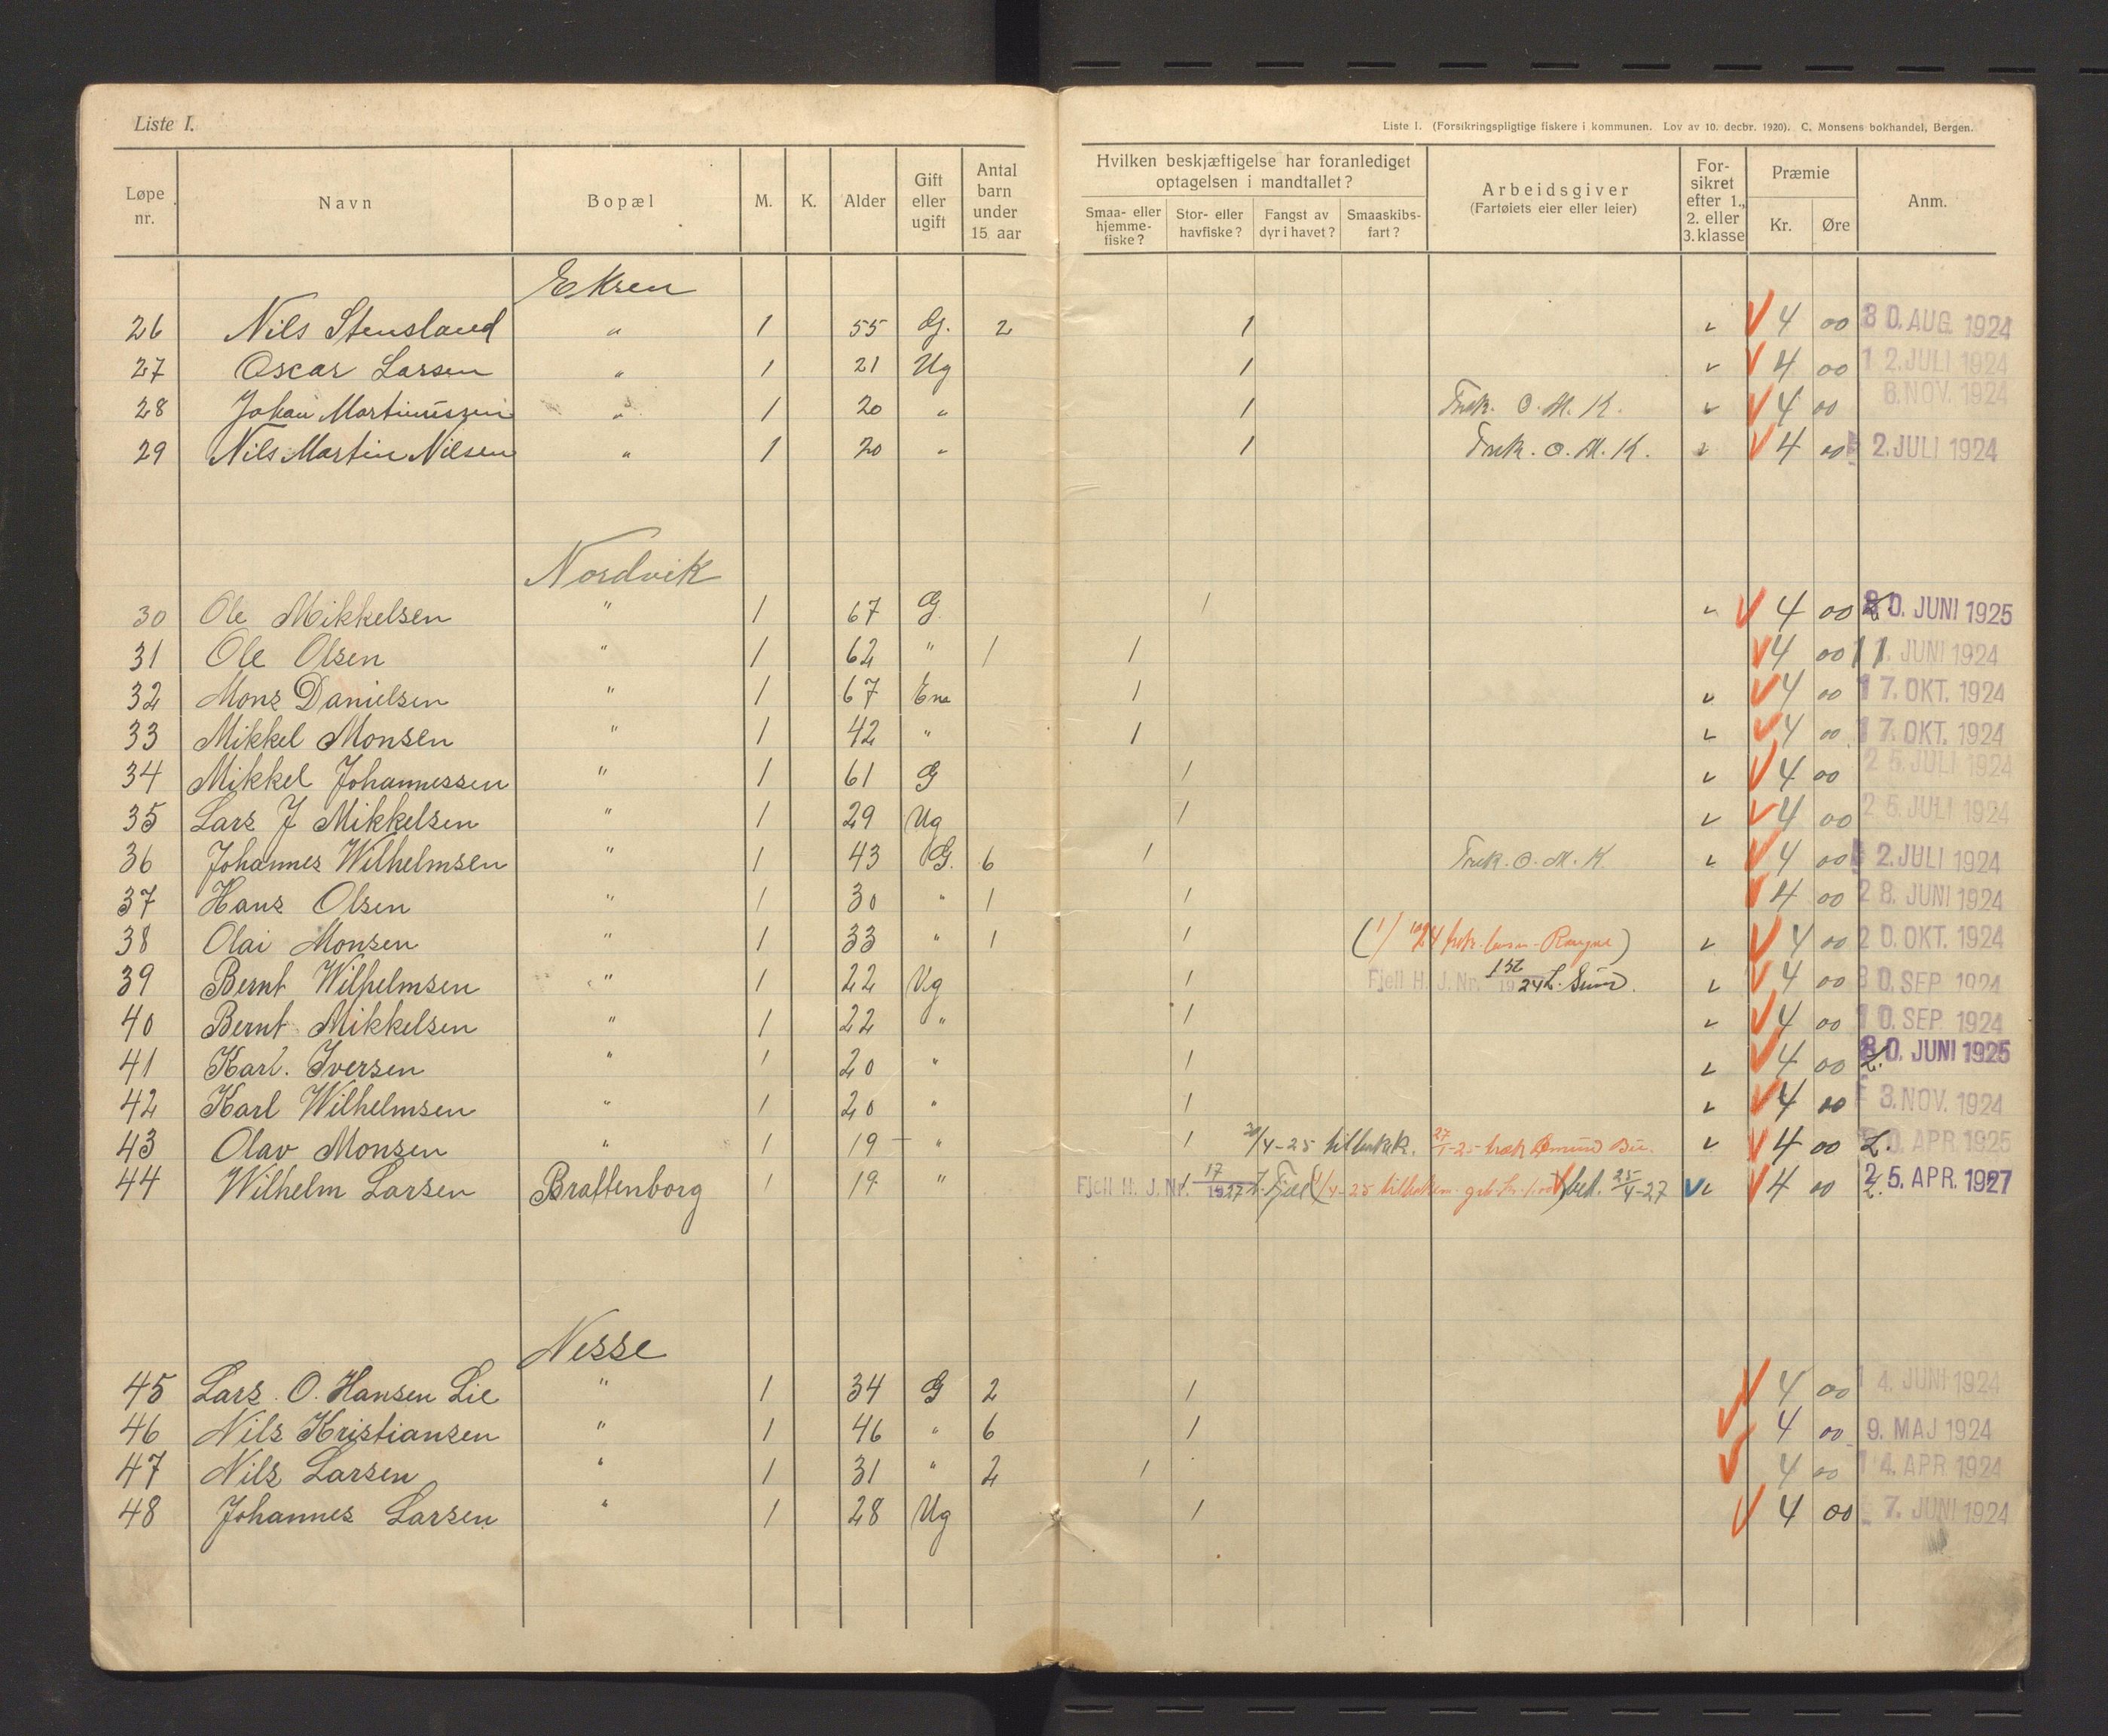 Liste I.
Liste I. (Forsikringspligtige fiskere i kommunen. Lov av 10. decbr. 1920). C. Monsens bokhandel, Bergen.
Løpe nr. Navn Bopæl M. K. Alder Gift eller ugift Antal barn under 15 aar Hvilken beskjæftigelse har foranlediget optagelsen i mandtallet? Smaa- eller hjemme-fiske? Stor- eller havfiske? Fangst av dyr i havet? Smaaskibs-fart? Arbeidsgiver (Fartøiets eier eller leier) For-sikret efter 1., 2. eller 3. klasse Præmie Kr. Øre Anm.
Eksen
26 Nils Stensland " 1 55 G. 2 1 4 00 30. AUG. 1924
27 Oscar Larsen " 1 21 Ug 1 4 00 12. JULI 1924
28 Johan Martinussen " 1 20 " 1 Træk. O. M. K. 4 00 6. NOV. 1924
29 Nils Martin Nilsen " 1 20 " 1 Træk. O. M. K. 4 00 2. JULI 1924
Nordvik
30 Ole Mikkelsen " 1 67 G 1 4 00 30. JUNI 1925
31 Ole Olsen " 1 62 " 1 1 4 00 11. JUNI 1924
32 Mons Danielsen " 1 67 Em 1 4 00 17. OKT. 1924
33 Mikkel Monsen " 1 42 " 1 4 00 17. OKT. 1924
34 Mikkel Johannessen " 1 61 G 1 4 00 25. JULI 1924
35 Lars J Mikkelsen " 1 29 Ug 1 4 00 25. JULI 1924
36 Johannes Wilhelmsen " 1 43 G. 6 1 Træk. O. M. K. 4 00 2. JULI 1924
37 Hans Olsen " 1 30 " 1 1 4 00 28. JUNI 1924
38 Olai Monsen " 1 33 " 1 1 4 00 20. OKT. 1924
39 Bernt Wilhelmsen " 1 22 Ug 1 Fjell H. J. Nr. 1924 L. Sund. 4 00 30. SEP. 1924
40 Bernt Mikkelsen " 1 22 " 1 4 00 10. SEP. 1924
41 Karl. Iversen " 1 20 " 1 4 00 L. 30. JUNI 1925
42 Karl Wilhelmsen " 1 20 " 1 4 00 3. NOV. 1924
43 Olav Monsen " 1 19 " 1 4 00 L. APR. 1925
44 Wilhelm Larsen Brattenborg 1 19 " 1 Fjell H. J. Nr. 17 1927 L. Fjell bet. 25/4-27 4 00 L. 25. APR. 1927
Nesse
45 Lars O. Hansen Lie " 1 34 G 2 1 4 00 14. JUNI 1924
46 Nils Kristiansen " 1 46 " 6 1 4 00 9. MAJ 1924
47 Nils Larsen " 1 31 " 2 1 4 00 14. APR. 1924
48 Johannes Larsen " 1 28 Ug 1 4 00 7. JUNI 1924